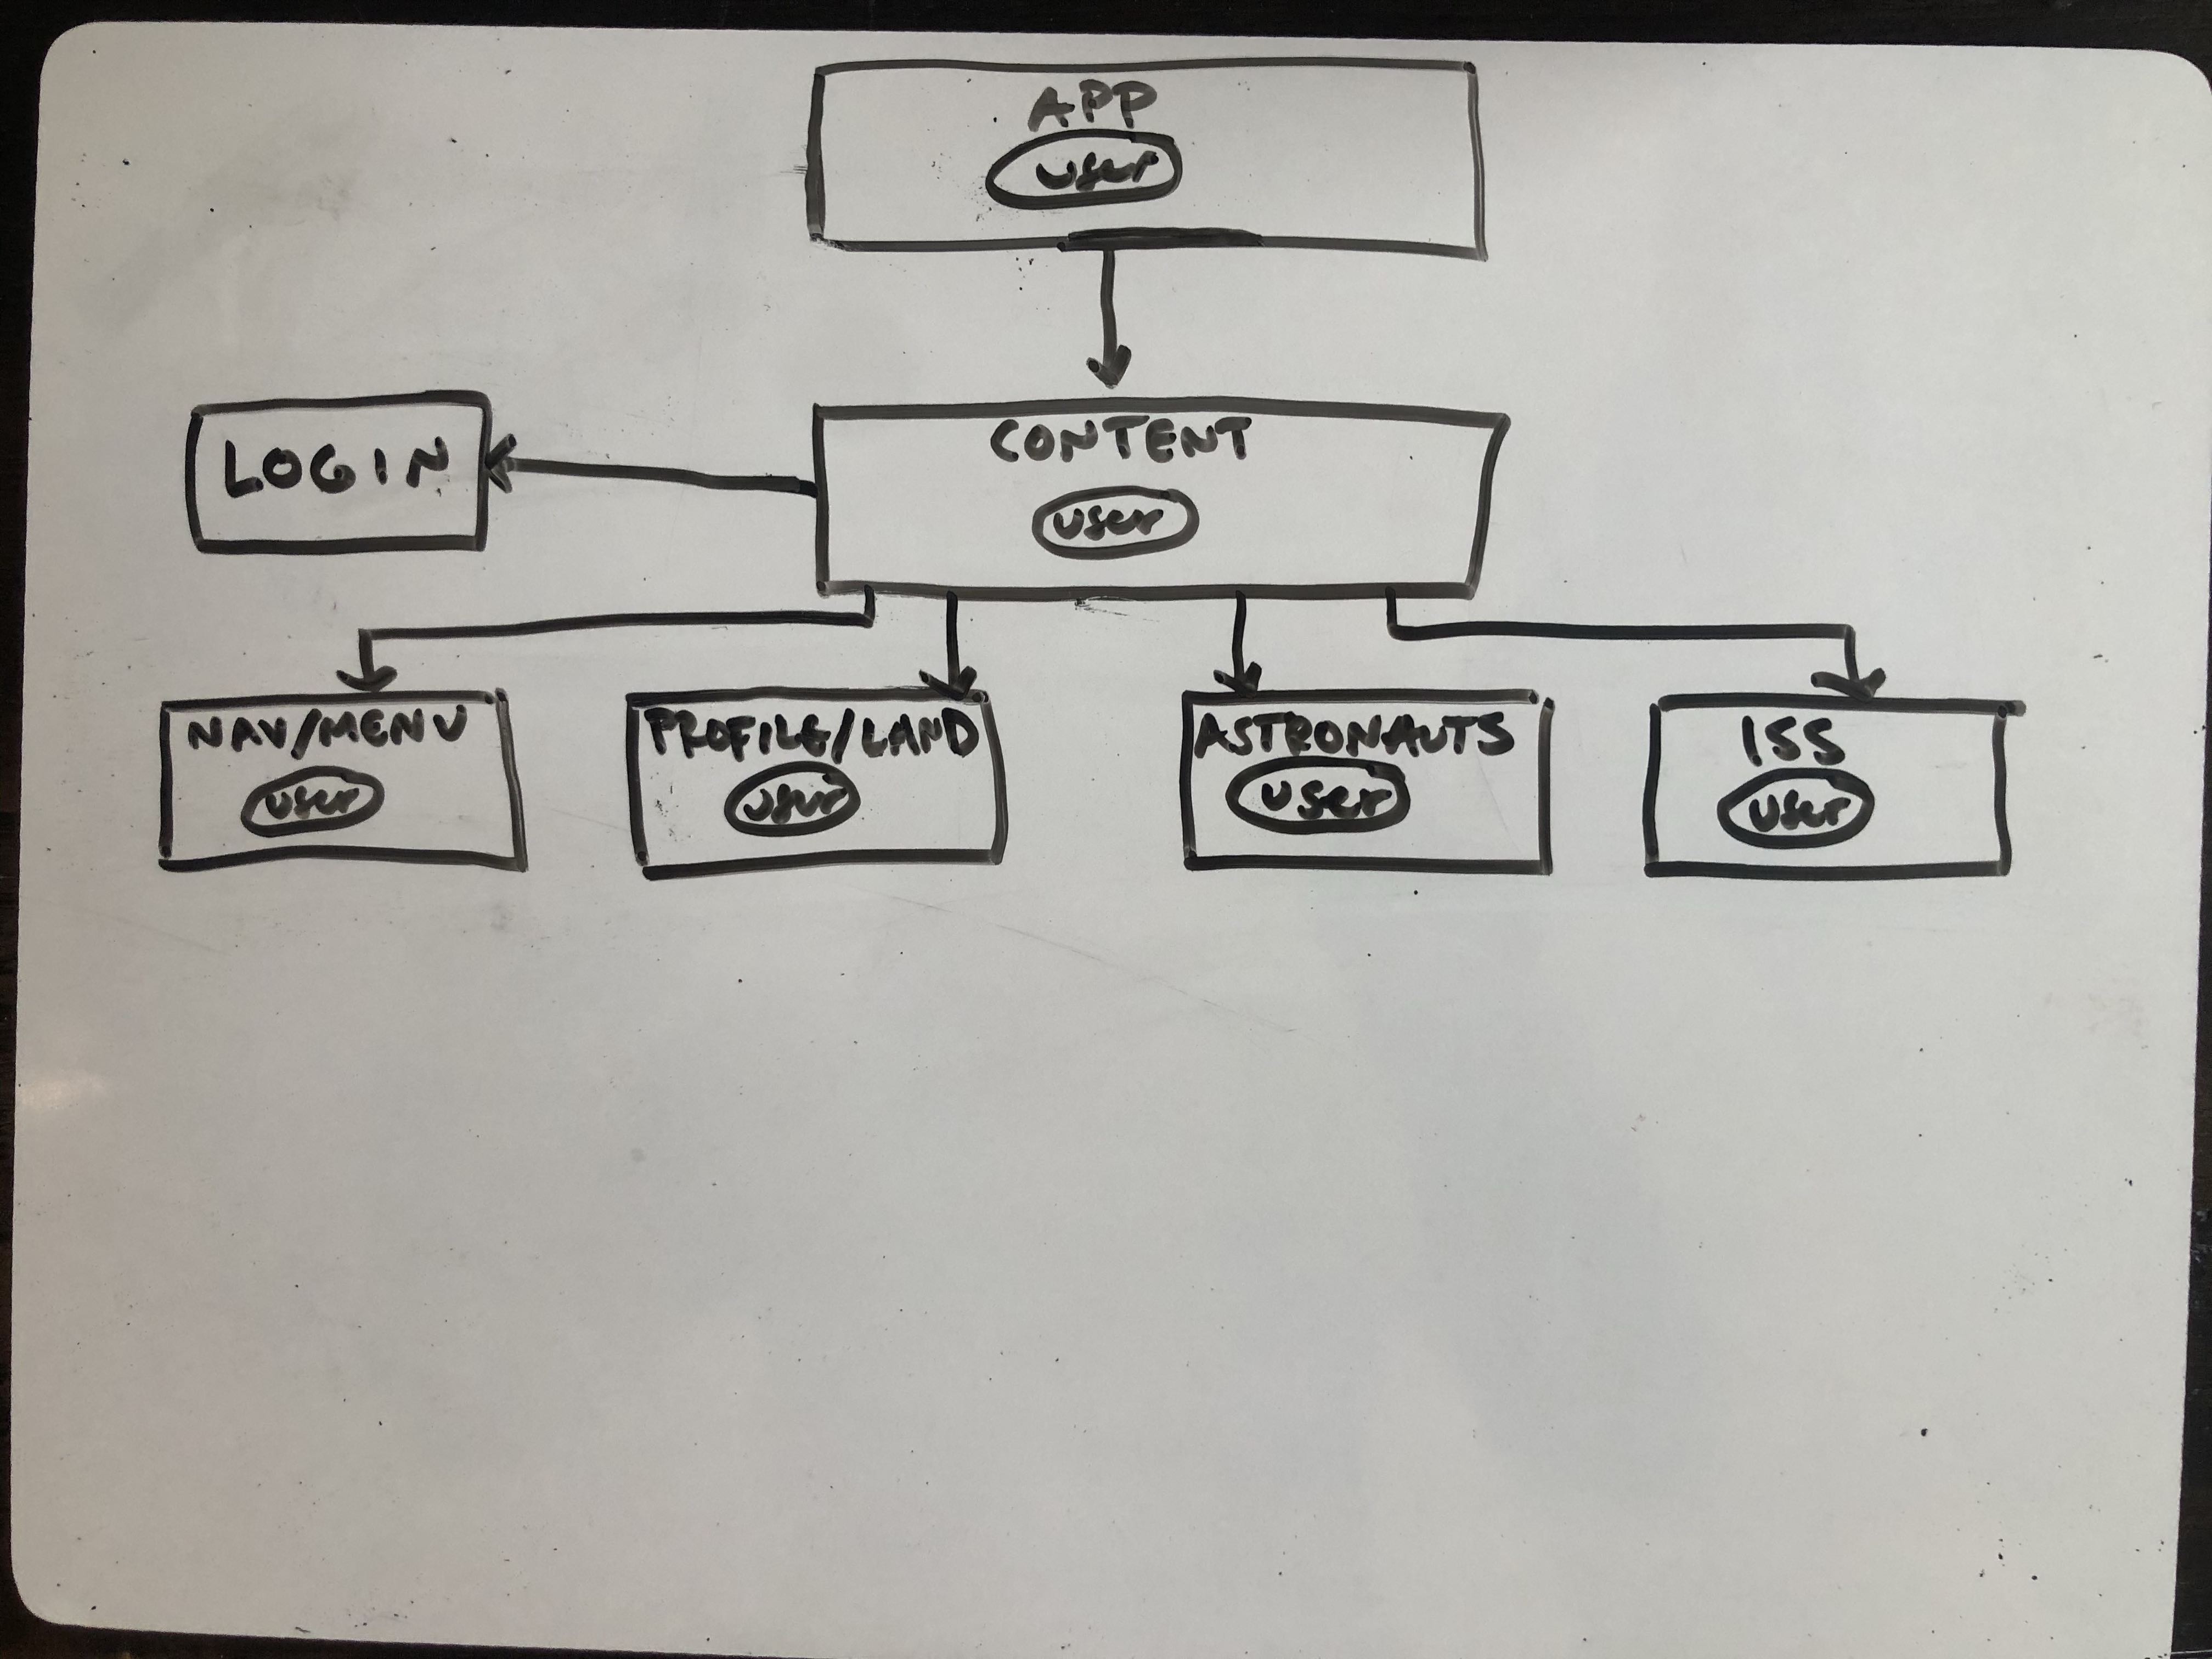 APP
user
CONTENT
user
LOGIN
NAV/MENU
user
PROFILE/LAND
user
ASTRONAUTS
user
ISS
user